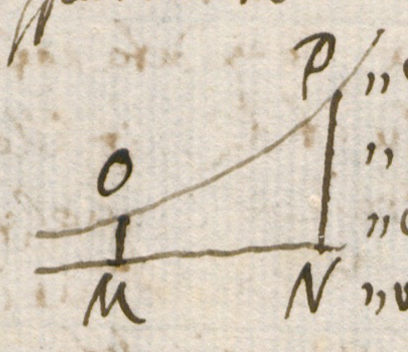 P „
„
O „
M N „